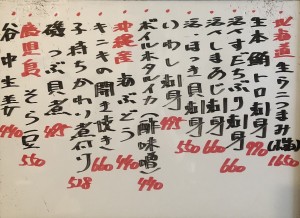 北海道 生ウニつまみ(塩水) 1650
生本鮪トロ刺身 990
活〆すだちぶり刺身 660
活〆しまあじ刺身 660
活、ほっき貝刺身 550
いわし刺身 495
ボイルホタルイカ(酢味噌) 440
沖縄産 海ぶどう 440
キンキの開き焼き 660
子持ちかわり煮付 528
磯つぶ貝煮 495
鹿児島 そら豆 550
谷中生姜 440